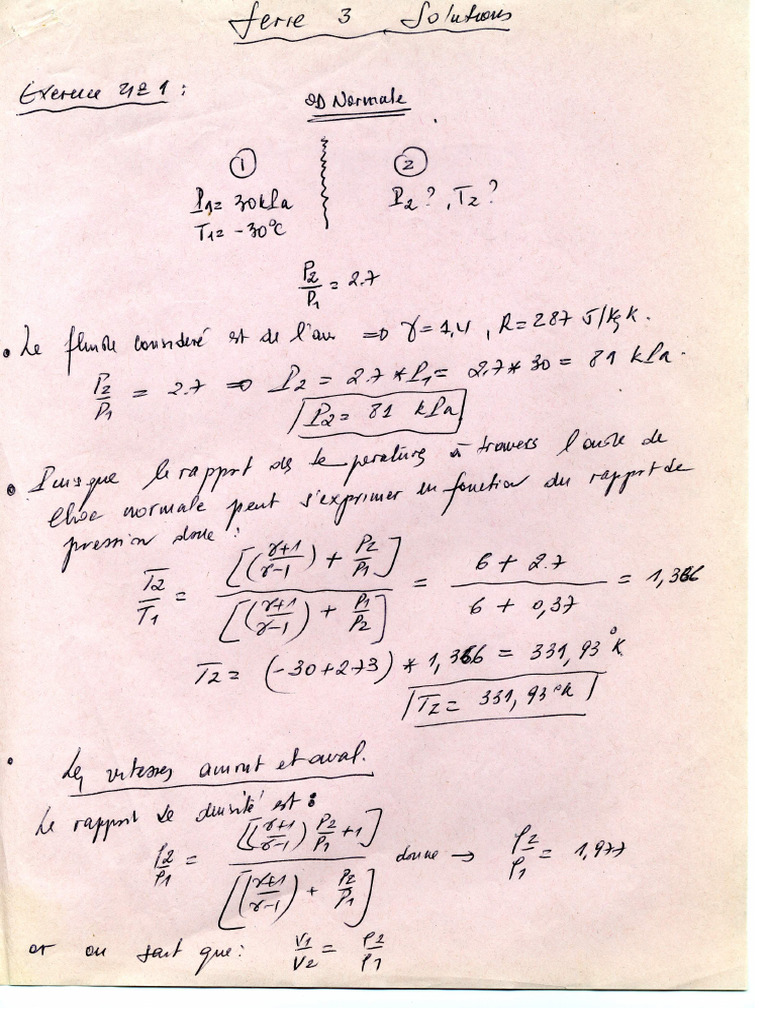 Serie 3 Solutions
Exercice N° 1 :
OD Normale
① ②
P1= 30kPa P2 ? , T2 ?
T1= -30°C
P2/P1 = 2.7
• Le fluide considéré est de l'air => γ=1,4 , R=287 J/kg k.
P2/P1 = 2.7 => P2 = 2.7 * P1 = 2.7*30 = 81 kPa.
P2 = 81 kPa
• Puisque le rapport des températures à travers l'onde de
choc normale peut s'exprimer en fonction du rapport de
pression donc :
T2/T1 = [((γ+1)/(γ-1)) + P2/P1] / [((γ+1)/(γ-1)) + P1/P2] = (6 + 2.7)/(6 + 0,37) = 1,366
T2 = (-30+273) * 1,366 = 331,93 °K
T2 = 331,93 °k
• Les vitesses amont et aval.
Le rapport de densité est :
ρ2/ρ1 = [((γ+1)/(γ-1)) P2/P1 +1] / [((γ+1)/(γ-1)) + P2/P1] donc → ρ2/ρ1 = 1,977
or on sait que: V1/V2 = ρ2/ρ1